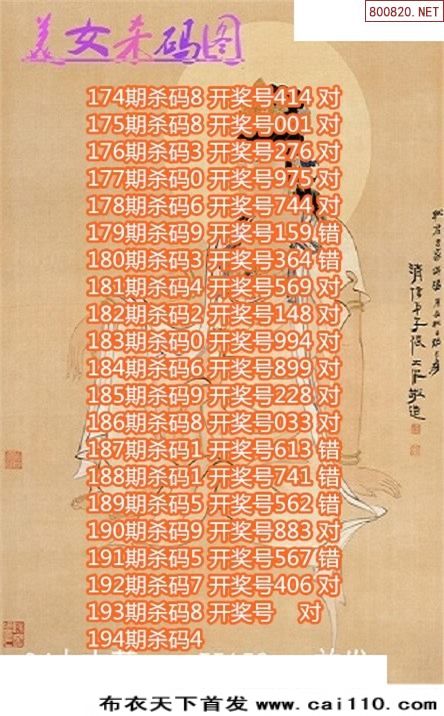 800820.NET
美女杀码图
174期杀码8 开奖号414 对
175期杀码8 开奖号001 对
176期杀码3 开奖号276 对
177期杀码0 开奖号975 对
178期杀码6 开奖号744 对
179期杀码9 开奖号159 错
180期杀码3 开奖号364 错
181期杀码4 开奖号569 对
182期杀码2 开奖号148 对
183期杀码0 开奖号994 对
184期杀码6 开奖号899 对
185期杀码9 开奖号228 对
186期杀码8 开奖号033 对
187期杀码1 开奖号613 错
188期杀码1 开奖号741 错
189期杀码5 开奖号562 错
190期杀码9 开奖号883 对
191期杀码5 开奖号567 错
192期杀码7 开奖号406 对
193期杀码8 开奖号 对
194期杀码4
布衣天下首发 www.cai110.com